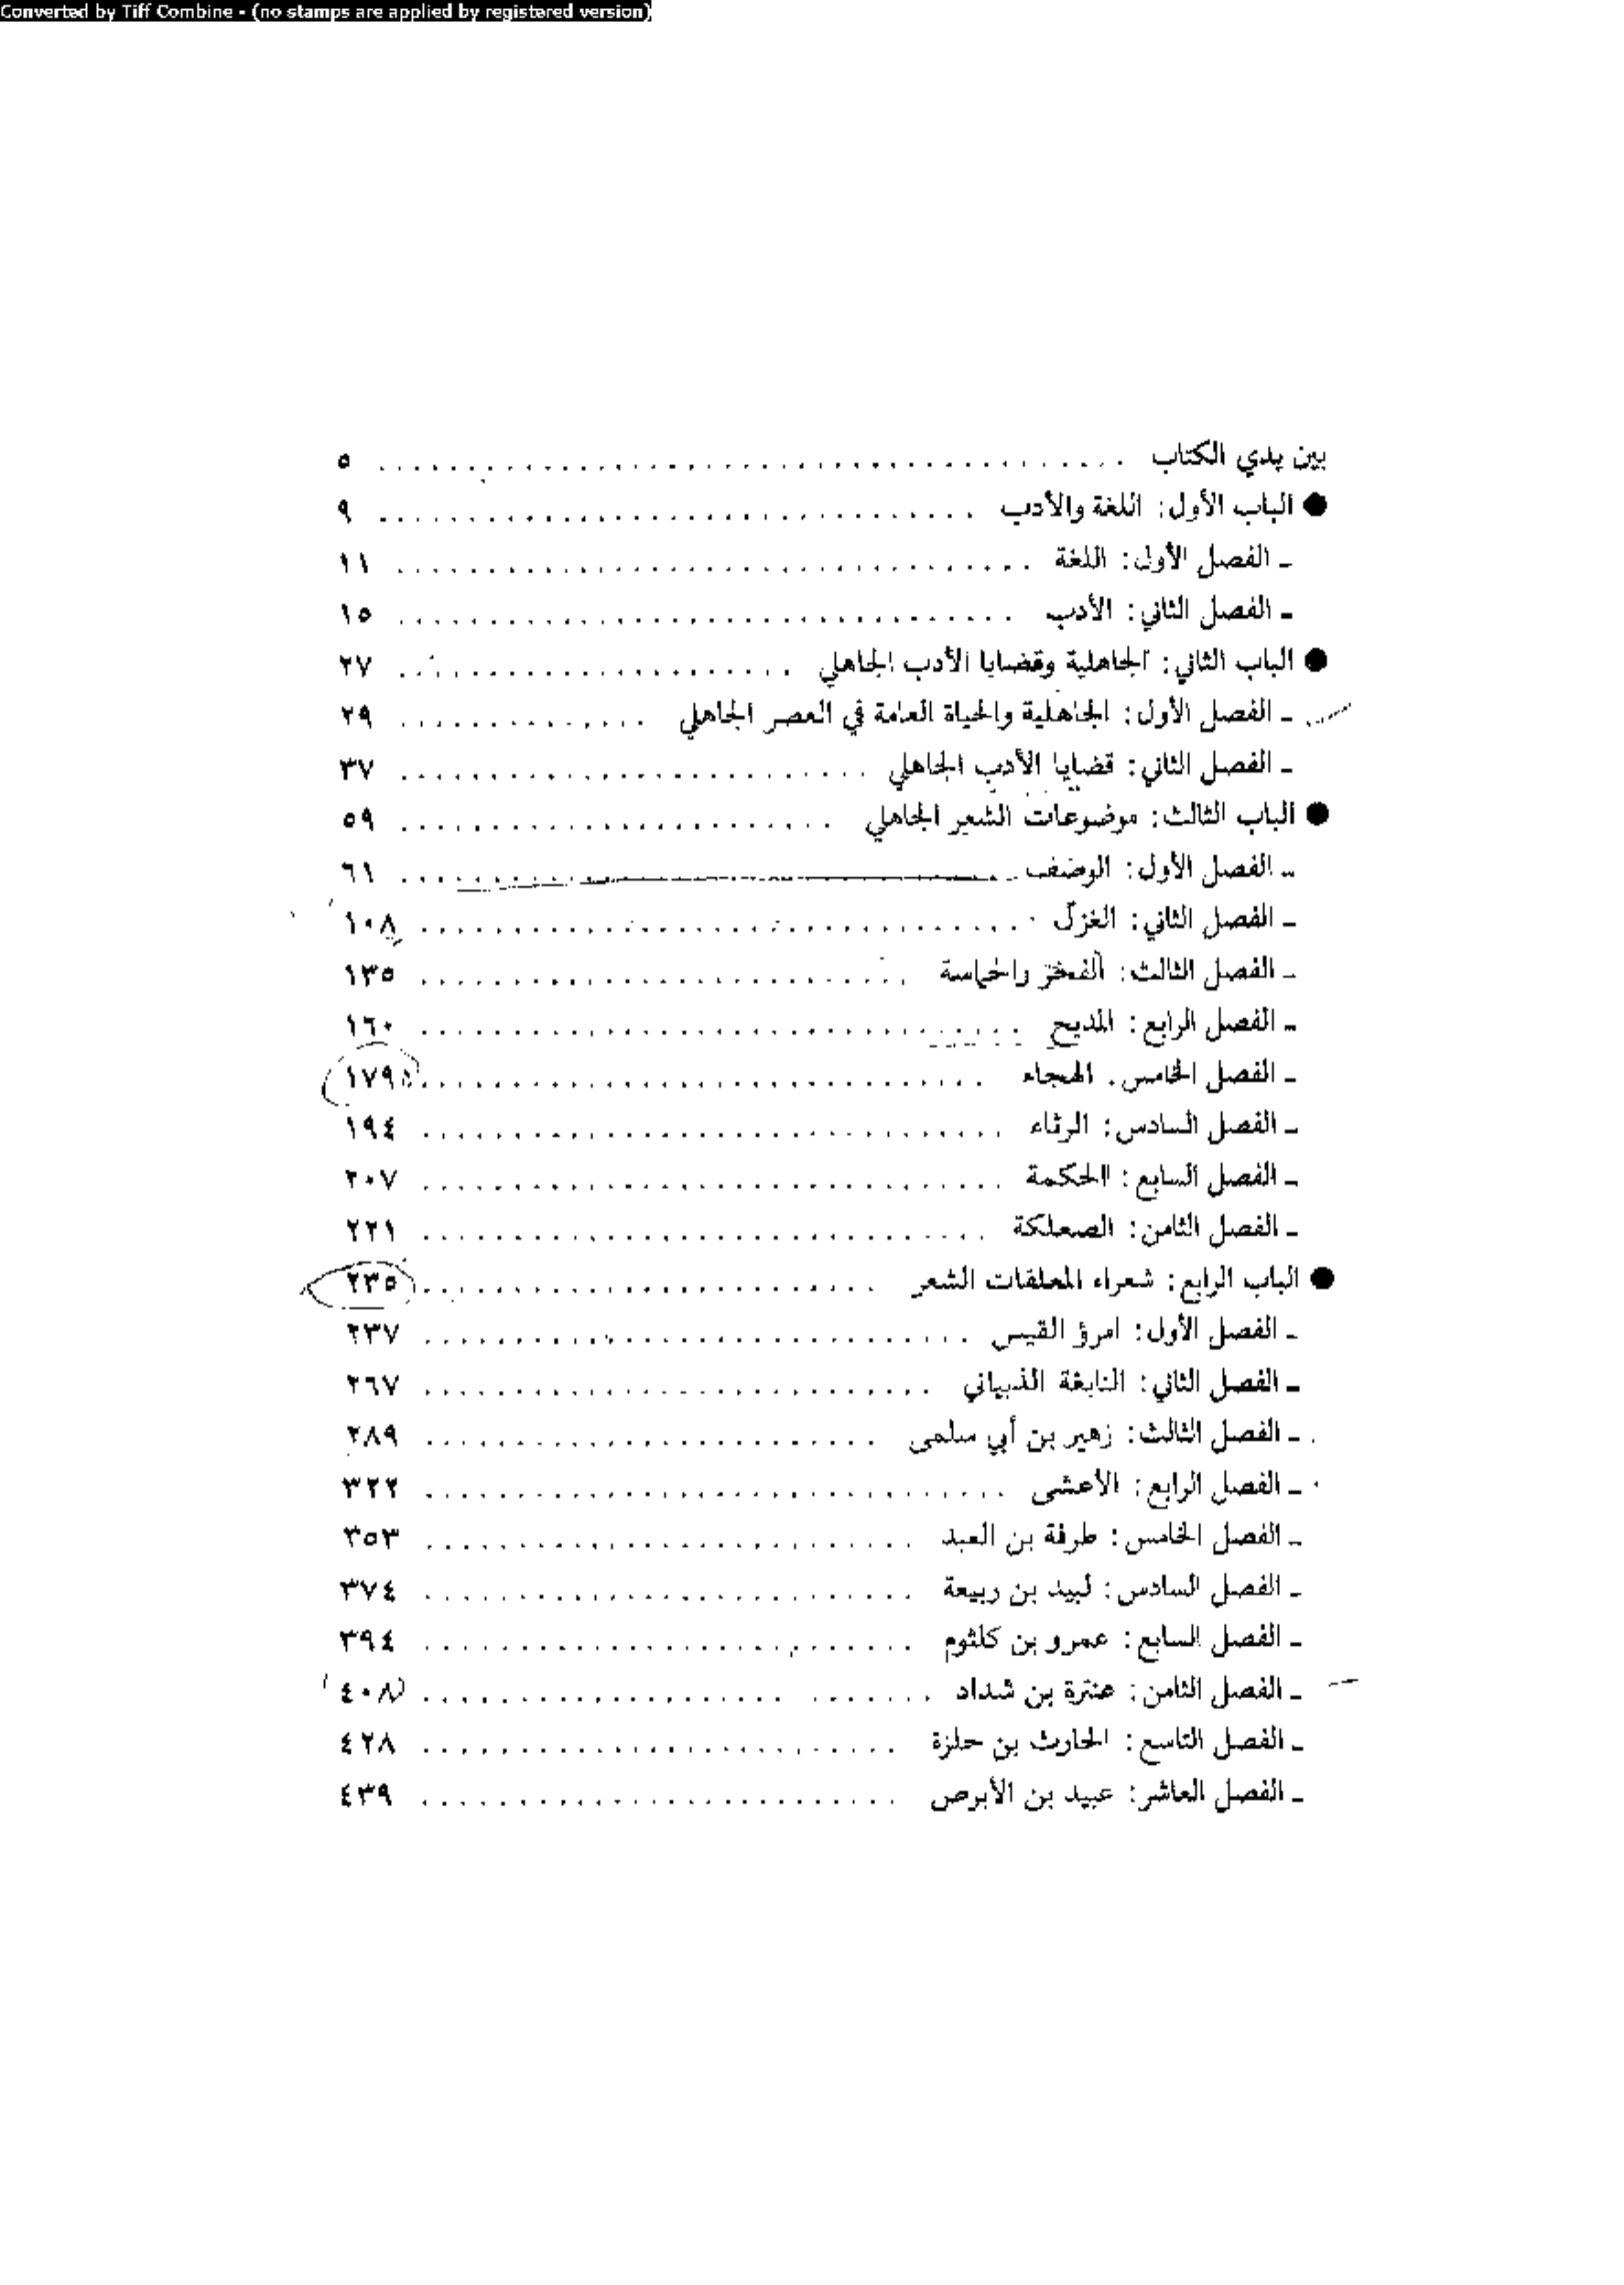 Converted by Tiff Combine - (no stamps are applied by registered version)
بين يدي الكتاب ........ ٥
● الباب الأول: اللغة والأدب ........ ٩
ـ الفصل الأول: اللغة ........ ١١
ـ الفصل الثاني: الأدب ........ ١٥
● الباب الثاني: الجاهلية وقضايا الأدب الجاهلي ........ ٢٧
ـ الفصل الأول: الجاهلية والحياة العامة في العصر الجاهلي ........ ٢٩
ـ الفصل الثاني: قضايا الأدب الجاهلي ........ ٣٧
● الباب الثالث: موضوعات الشعر الجاهلي ........ ٥٩
ـ الفصل الأول: الوصف ........ ٦١
ـ الفصل الثاني: الغزل ........ ١٠٨
ـ الفصل الثالث: الفخر والحماسة ........ ١٣٥
ـ الفصل الرابع: المديح ........ ١٦٠
ـ الفصل الخامس. الهجاء ........ ١٧٩
ـ الفصل السادس: الرثاء ........ ١٩٤
ـ الفصل السابع: الحكمة ........ ٢٠٧
ـ الفصل الثامن: الصعلكة ........ ٢٢١
● الباب الرابع: شعراء المعلقات الشعر ........ ٢٣٥
ـ الفصل الأول: امرؤ القيس ........ ٢٣٧
ـ الفصل الثاني: النابغة الذبياني ........ ٢٦٧
ـ الفصل الثالث: زهير بن أبي سلمى ........ ٢٨٩
ـ الفصل الرابع: الأعشى ........ ٣٢٢
ـ الفصل الخامس: طرفة بن العبد ........ ٣٥٣
ـ الفصل السادس: لبيد بن ربيعة ........ ٣٧٤
ـ الفصل السابع: عمرو بن كلثوم ........ ٣٩٤
ـ الفصل الثامن: عنترة بن شداد ........ ٤٠٨
ـ الفصل التاسع: الحارث بن حلزة ........ ٤٢٨
ـ الفصل العاشر: عبيد بن الأبرص ........ ٤٣٩